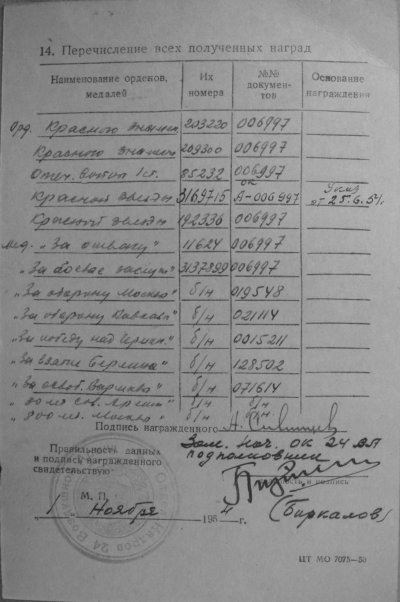 14. Перечисление всех полученных наград
Наименование орденов, медалей
Их номера
№№ документов
Основание награждения
Орд. Красного знамени 203220 006997
Красного знамени 209300 006997
Отеч. войны 1 ст. 85232 006997
Красной звезды 3169715 А-006997 Указ от 25.6.54г
Красной звезды 192336 006997
Мед. „За отвагу" 11624 006997
„За боевые заслуги" 3137899 006997
„За оборону Москвы" б/н 019548
„За оборону Кавказа" б/н 021114
„За победу над Герман." б/н 0015211
„За взятие Берлина" б/н 128502
„За освоб. Варшавы" б/н 071614
„30 лет Сов. Армии" б/н б/н
„800 лет Москвы" б/н б/н
Подпись награжденного
Зам. нач. ОК 24 ВА
подполковник
Правильность данных
и подпись награжденного
свидетельствую:
подпись
М. П.
(Биркалов)
1 „ Ноября 1954 г.
ЦТ МО 7075—53